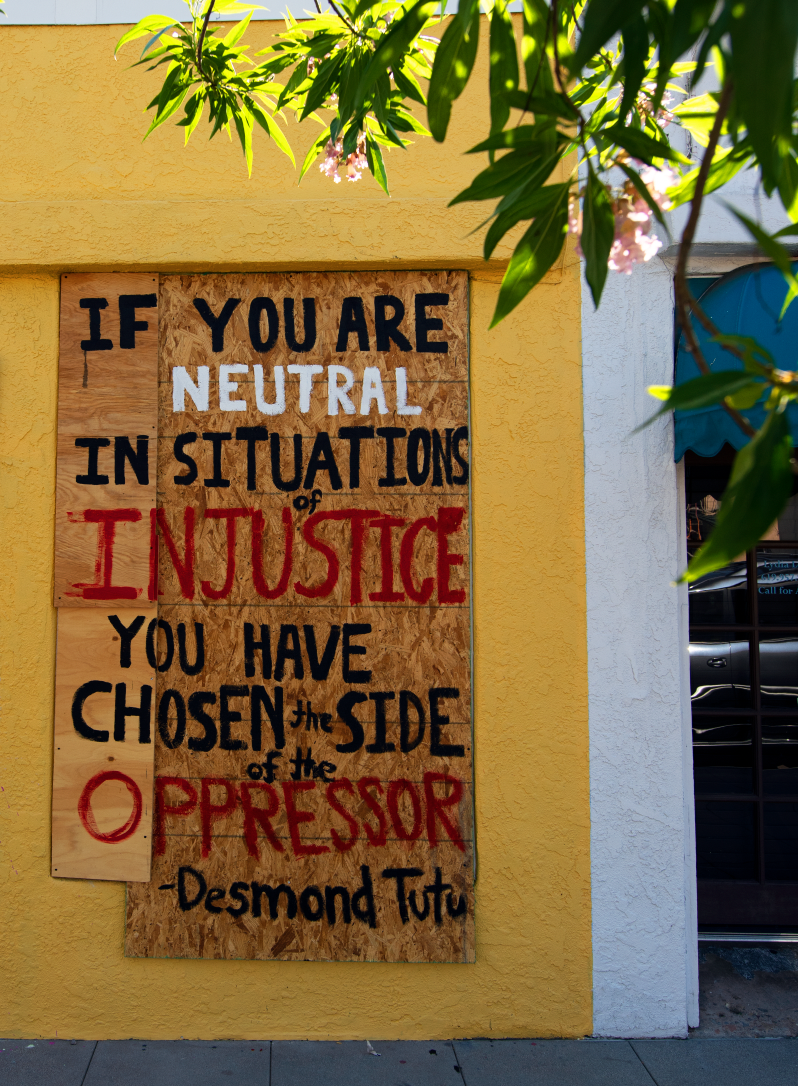 IF YOU ARE
NEUTRAL
IN SITUATIONS
of
INJUSTICE
YOU HAVE
CHOSEN the SIDE
of the
OPPRESSOR
-Desmond Tutu
Call for